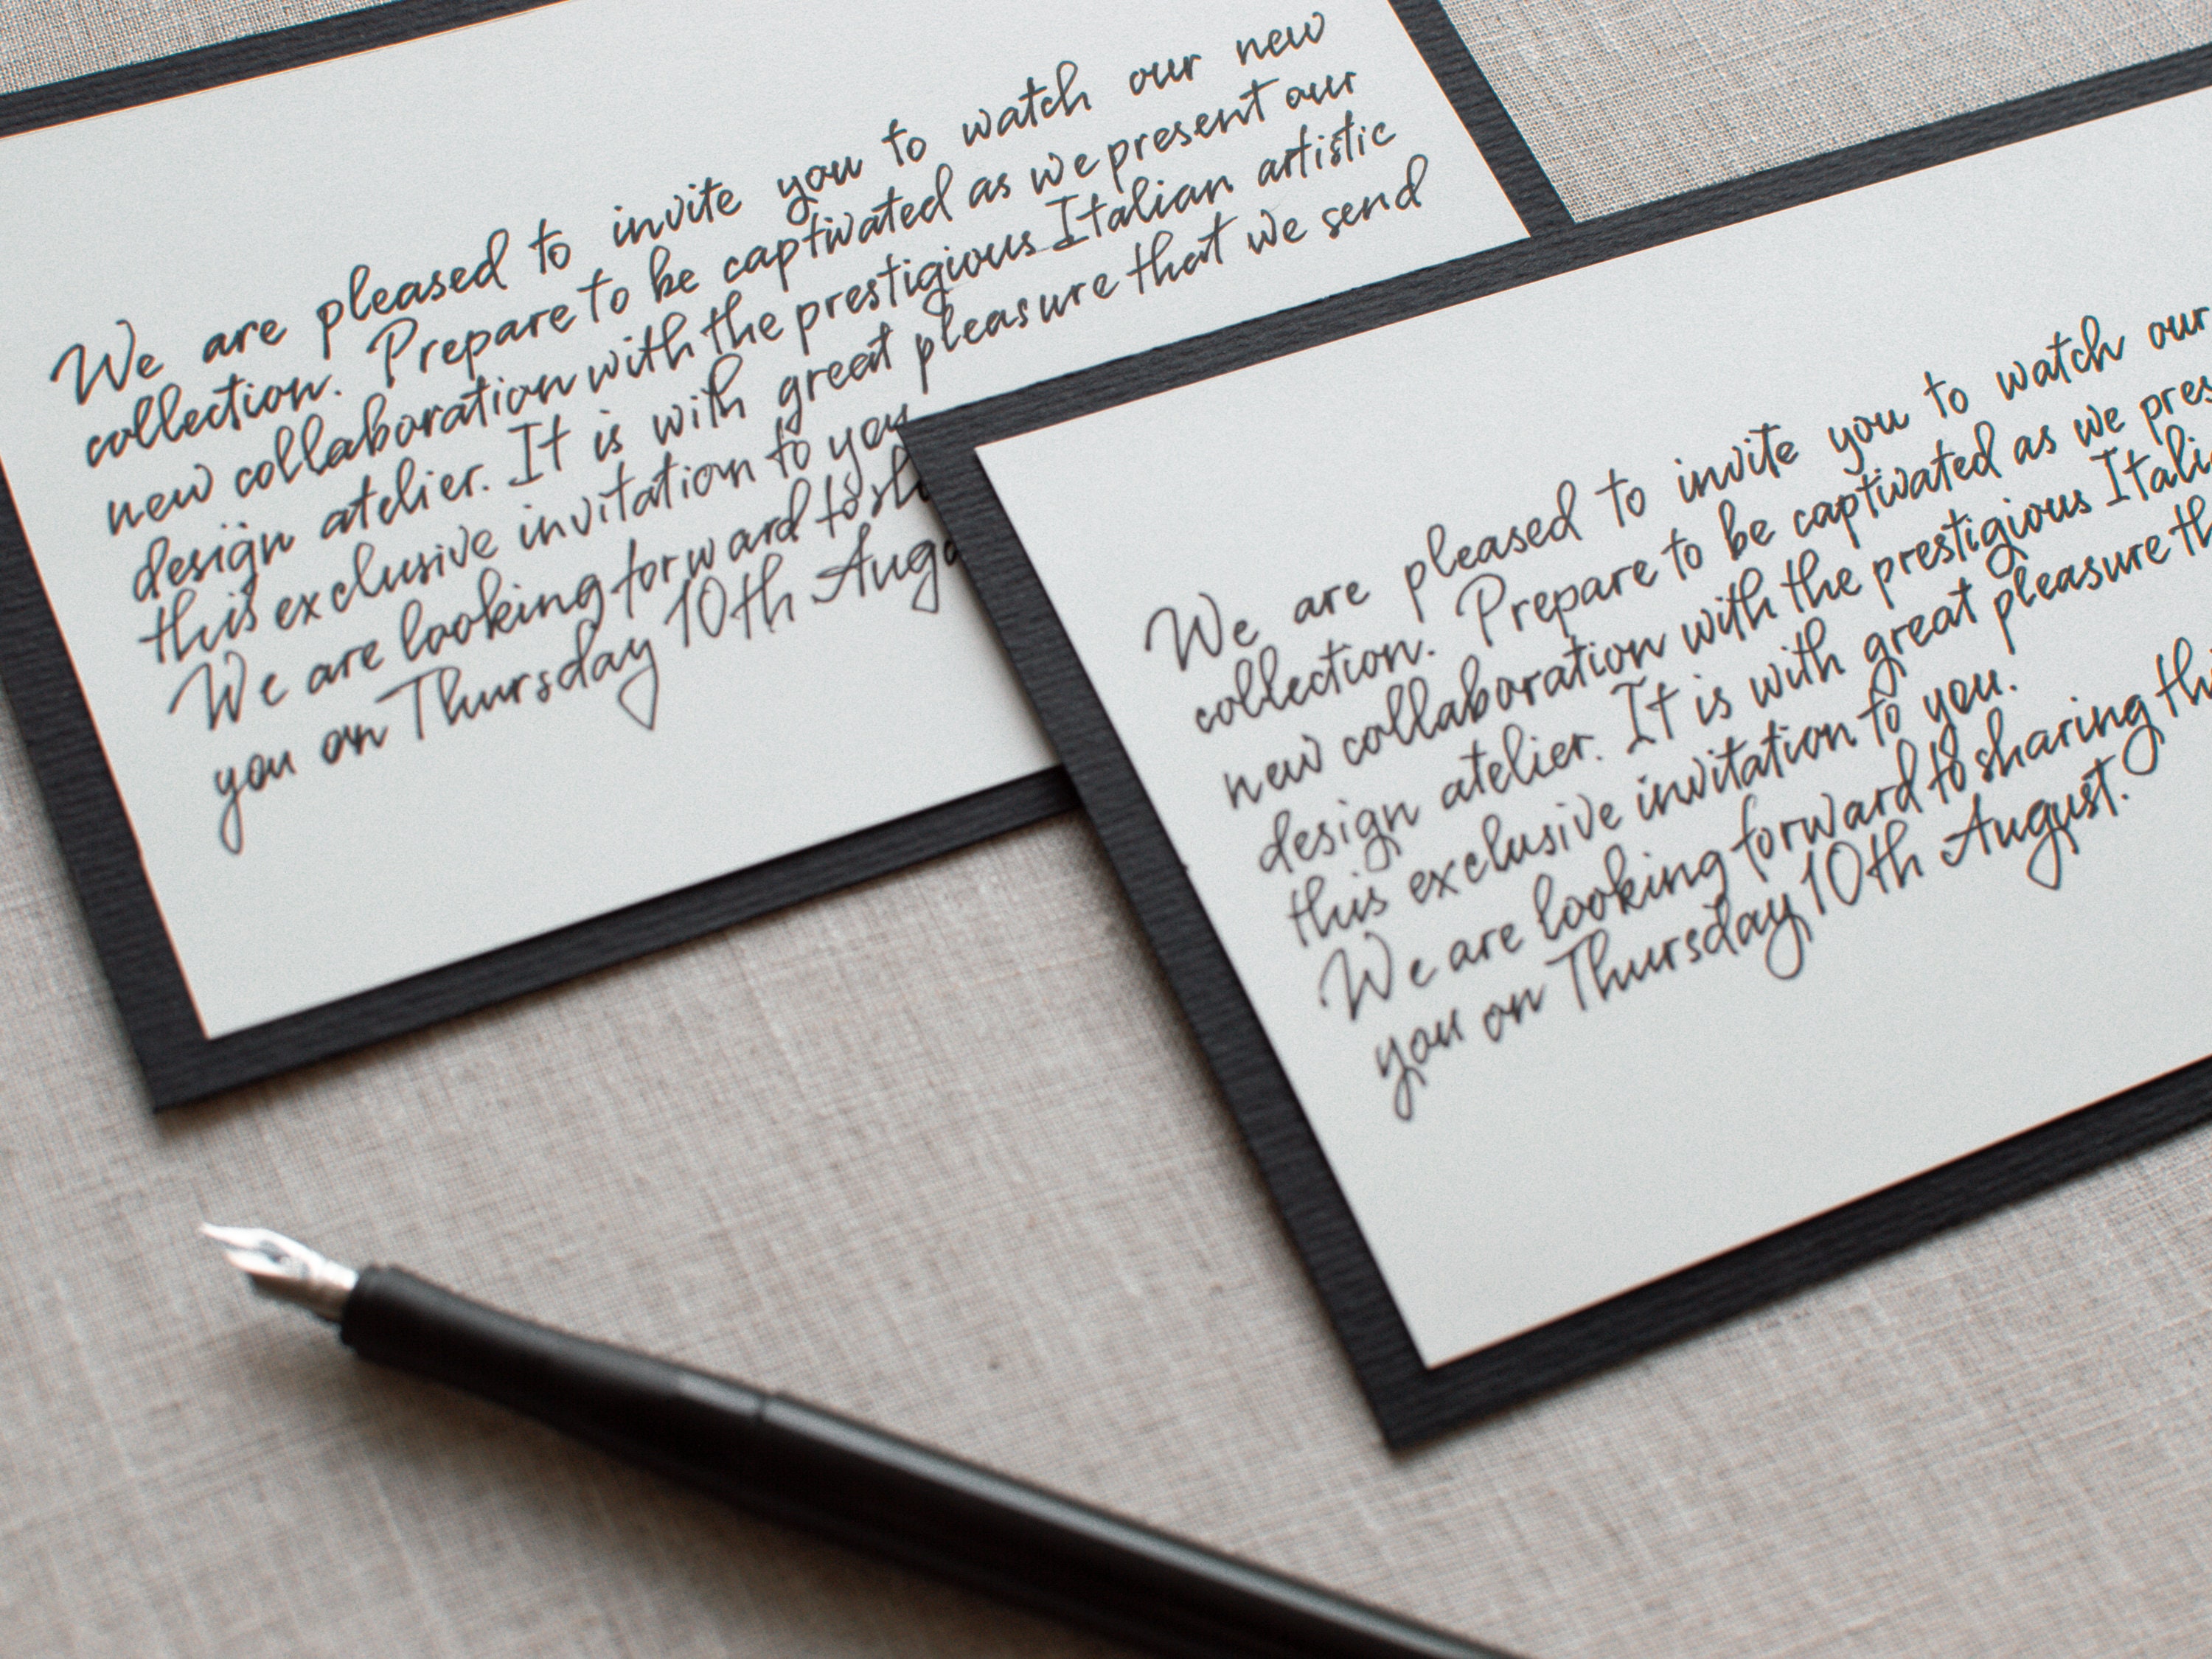 We are pleased to invite you to watch our new
collection. Prepare to be captivated as we present our
new collaboration with the prestigious Italian artistic
design atelier. It is with great pleasure that we send
this exclusive invitation to you
We are looking forward to
you on Thursday 10th
We are pleased to invite you to watch our
collection. Prepare to be captivated as we
new collaboration with the prestigious
design atelier. It is with great pleasure
this exclusive invitation to you.
We are looking forward to sharing
you on Thursday 10th August.